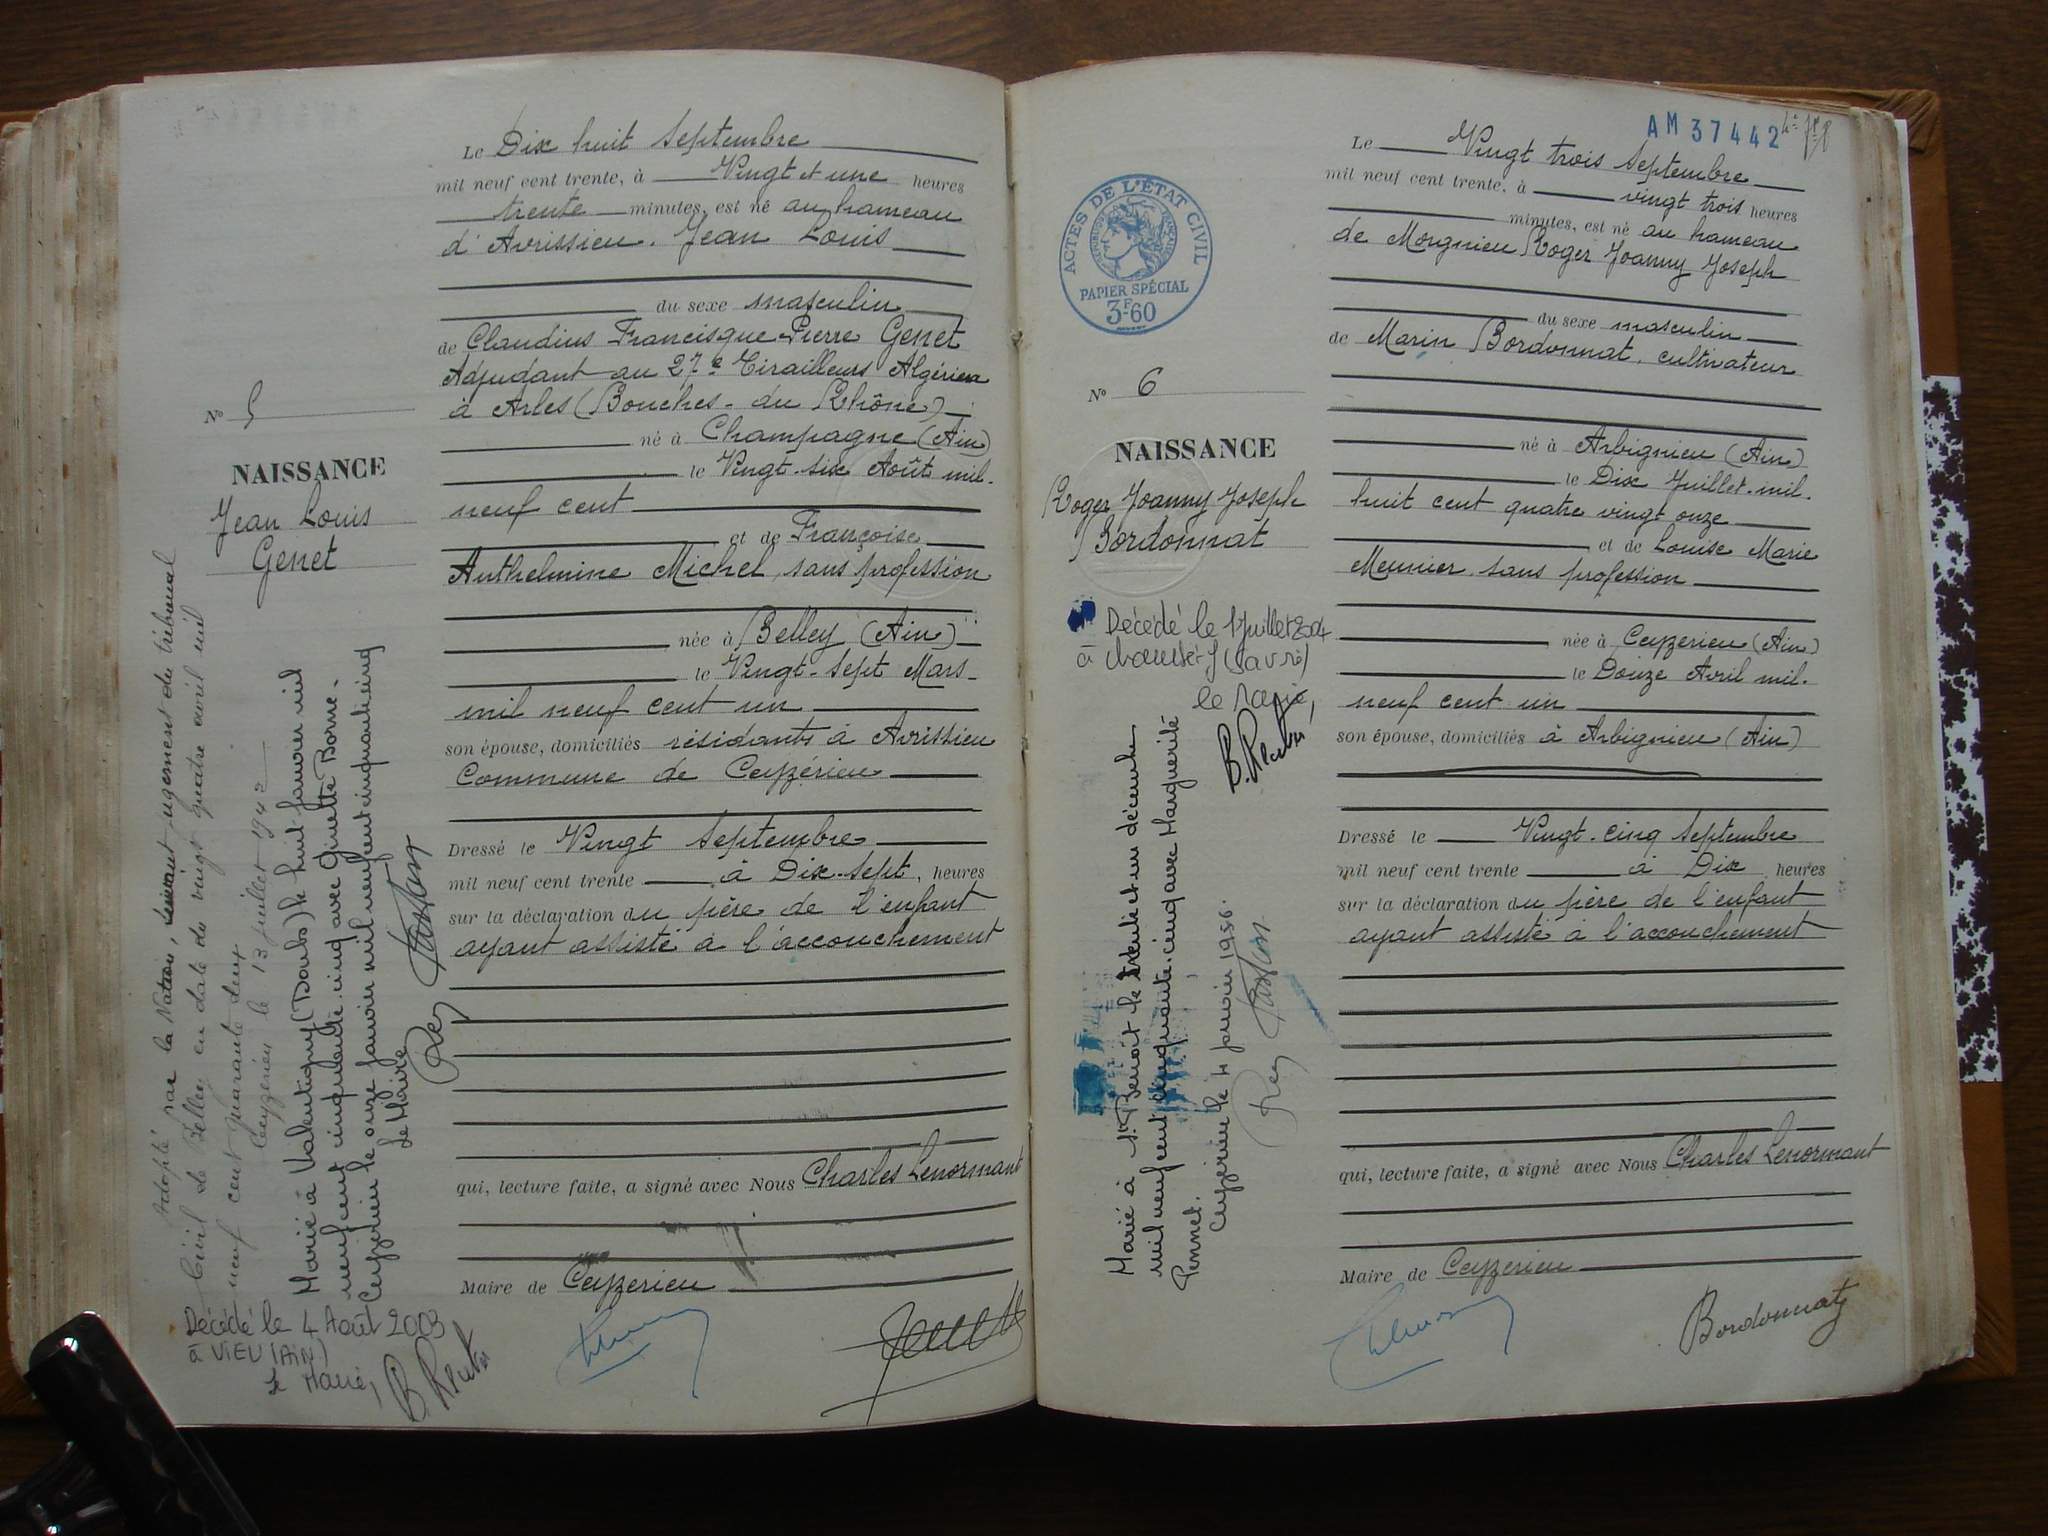 Le Dix huit Septembre
mil neuf cent trente, à Vingt et une heures
trente minutes, est né au hameau
d'Avrissieu. Jean Louis
du sexe masculin
de Claudius Francisque Pierre Genet
Adjudant au 27e Tirailleurs Algériens
à Arles (Bouches-du Rhône)
né à Champagne (Ain)
le Vingt-six Août mil-
neuf cent
et de Françoise
Anthelmine Michel, sans profession
née à Belley (Ain)
le Vingt-sept Mars
mil neuf cent un
son épouse, domiciliés résidants à Avrissieu
Commune de Ceyzérieu
Dressé le Vingt Septembre
mil neuf cent trente à Dix-sept, heures
sur la déclaration du père de l'enfant
ayant assisté à l'accouchement
qui, lecture faite, a signé avec Nous Charles Lenormant
Maire de Ceyzerieu
No 5
NAISSANCE
Jean Louis
Genet
Adopté par la Nation, suivant jugement du tribunal
Civil de Belley en date du vingt quatre avril mil
neuf cent quarante deux
Ceyzérieu le 13 juillet 1942
Marié à Valentigney (Doubs) le huit janvier mil
neuf cent cinquante cinq avec Ginette Borne.
Ceyzerieu le onze janvier mil neuf cent cinquante cinq
Le Maire
Décédé le 4 Août 2003
à VIEU (AIN)
Le Maire,
AM 37442
Le Vingt trois Septembre
mil neuf cent trente, à vingt trois heures
minutes, est né au hameau
de Morgnieu Roger Joanny Joseph
du sexe masculin
de Marin Bordonnat, cultivateur
né à Arbignieu (Ain)
le Dix Juillet mil-
huit cent quatre vingt onze
et de Louise Marie
Meunier, sans profession
née à Ceyzerieu (Ain)
le Douze Avril mil-
neuf cent un
son épouse, domiciliés à Arbignieu (Ain)
Dressé le Vingt-cinq Septembre
mil neuf cent trente à Dix heures
sur la déclaration du père de l'enfant
ayant assisté à l'accouchement
qui, lecture faite, a signé avec Nous Charles Lenormant
Maire de Ceyzerieu
Bordonnat
ACTES DE L'ÉTAT CIVIL
RÉPUBLIQUE FRANÇAISE
PAPIER SPÉCIAL
3F.60
No 6
NAISSANCE
Roger Joanny Joseph
Bordonnat
Décédé le 1 Juillet 2004
le Maire,
Marié à St Benoit le trente et un décembre
mil neuf cent cinquante cinq avec Marguerite
Pennet.
Ceyzerieu le 4 janvier 1956.